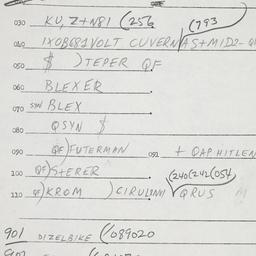 030 KU, Z+N81 (256 (793
040 IXOB681VOLT CUVERN AS+MID2-
050 $ )TEPER QF
060 BLEXER
070 SYN BLEX
080 QSYN $
090 QF)FUTERMAN 092 + QAP HITLEN
100 QF)STERER (240(242(054
110 QF)KROM )CIRULINNI QRUS M
901 DIZELBIKE (089020